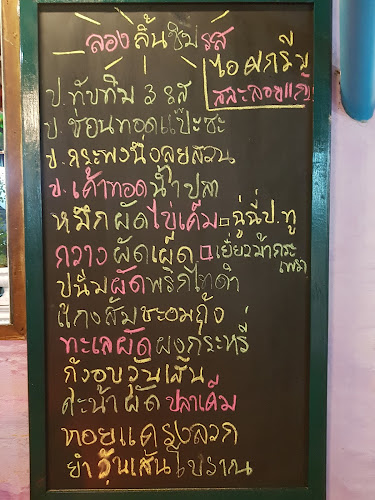 ลองลิ้นชิมรส
ไอศกรีม
สละลอยแก้ว
ป.ทับทิม 3 รส
ป.ช่อนทอดแป๊ะซะ
ป.กระพงนึ่งลุยสวน
ป.เค้าทอดน้ำปลา
หมึกผัดไข่เค็ม
ฉู่ฉี่ป.ทู
กวางผัดเผ็ด
เยี่ยวม้ากระเพรา
ปูนิ่มผัดพริกไทดำ
แกงส้มชะอมกุ้ง
ทะเลผัดผงกระหรี่
กุ้งอบวุ้นเส้น
คะน้าผัดปลาเค็ม
หอยแครงลวก
ยำวุ้นเส้นโบราณ